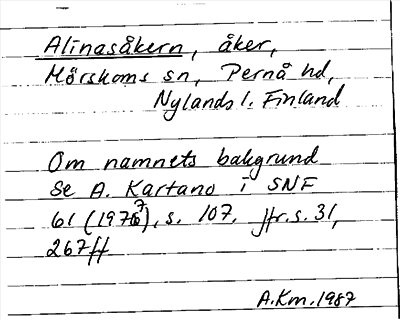 Alinasåkern, åker,
Mörskoms sn, Pernå hd,
Nylands l. Finland
Om namnets bakgrund
se A. Kartano i SNF
61 (1976⁷), s. 107. Jfr. s. 31,
267ff
A.Km. 1987